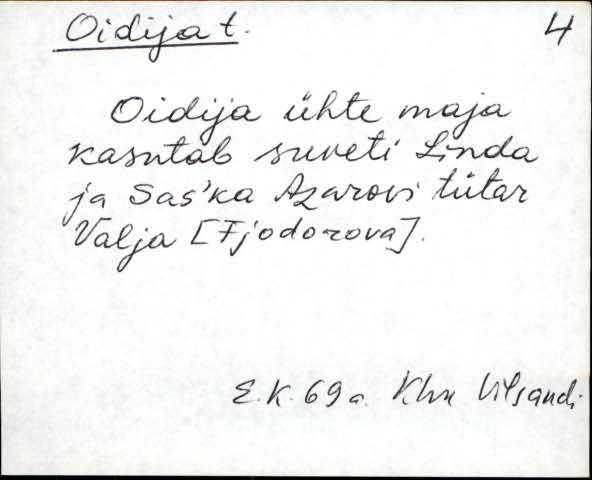 Oidija t. 4
Oidija ühte maja
kasutab suveti Linda
ja Saška Azarovi tütar
Valja [Fjodorova].
E.K. 69 a. Khn Vilsandi